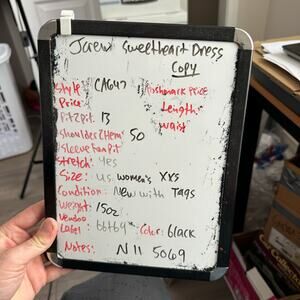 Jcrew Sweetheart Dress
Copy
Style: CA647 Poshmark Price
Price: Length:
Pit2Pit: 13 Waist
Shoulder2Hem: 50
Sleeve from Pit
Stretch: Yes
Size: U.S. women's XXS
Condition: New with Tags
Weight: 15oz
Vendoo
Label: Color: black
Notes: N 11 5069